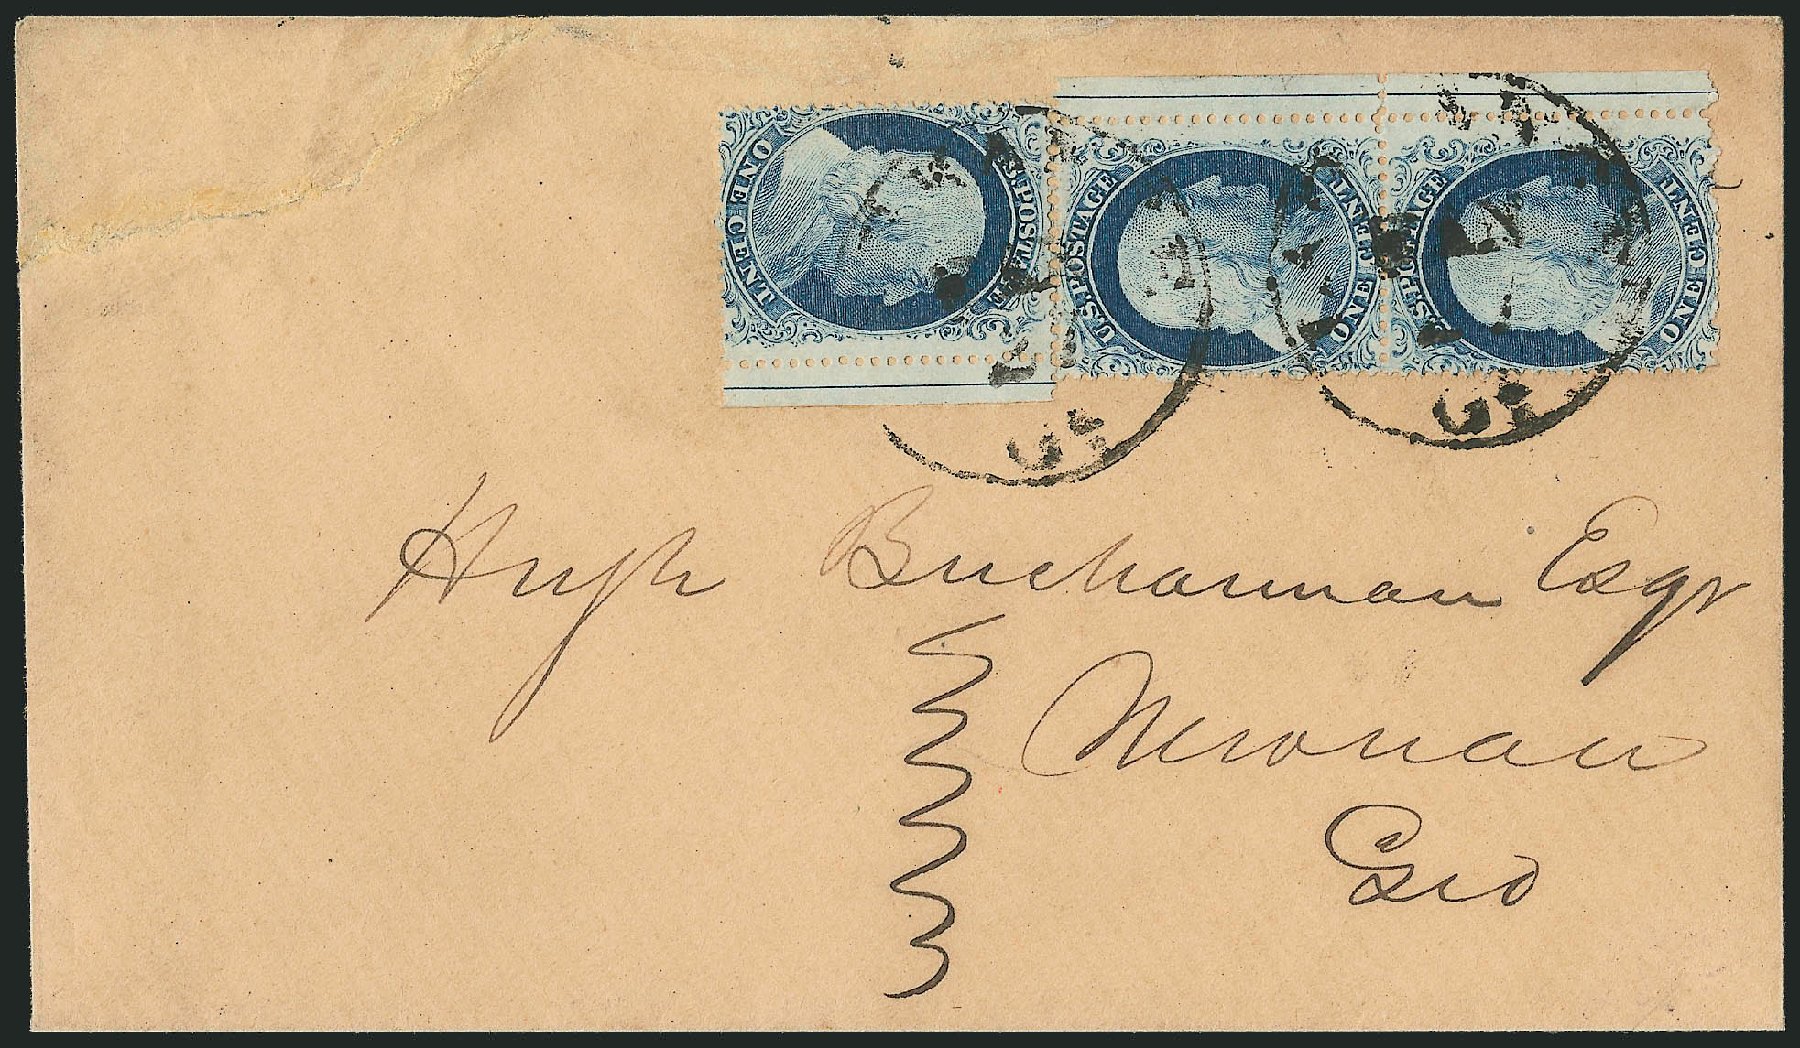 ONE CENT
U.S. POSTAGE
U.S. POSTAGE
ONE CENT
U.S. POSTAGE
ONE CENT
Hugh Buchannan Esqr
Newnan
Geo